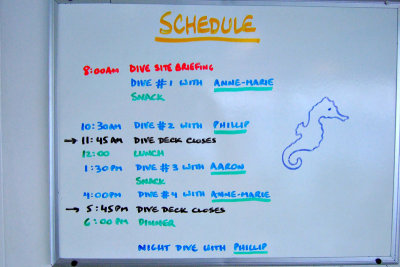 SCHEDULE
8:00AM DIVE SITE BRIEFING
DIVE #1 WITH ANNE-MARIE
SNACK
10:30AM DIVE #2 WITH PHILLIP
→ 11:45AM DIVE DECK CLOSES
12:00 LUNCH
1:30PM DIVE #3 WITH AARON
SNACK
4:00PM DIVE #4 WITH ANNE-MARIE
→ 5:45PM DIVE DECK CLOSES
6:00PM DINNER
NIGHT DIVE WITH PHILLIP